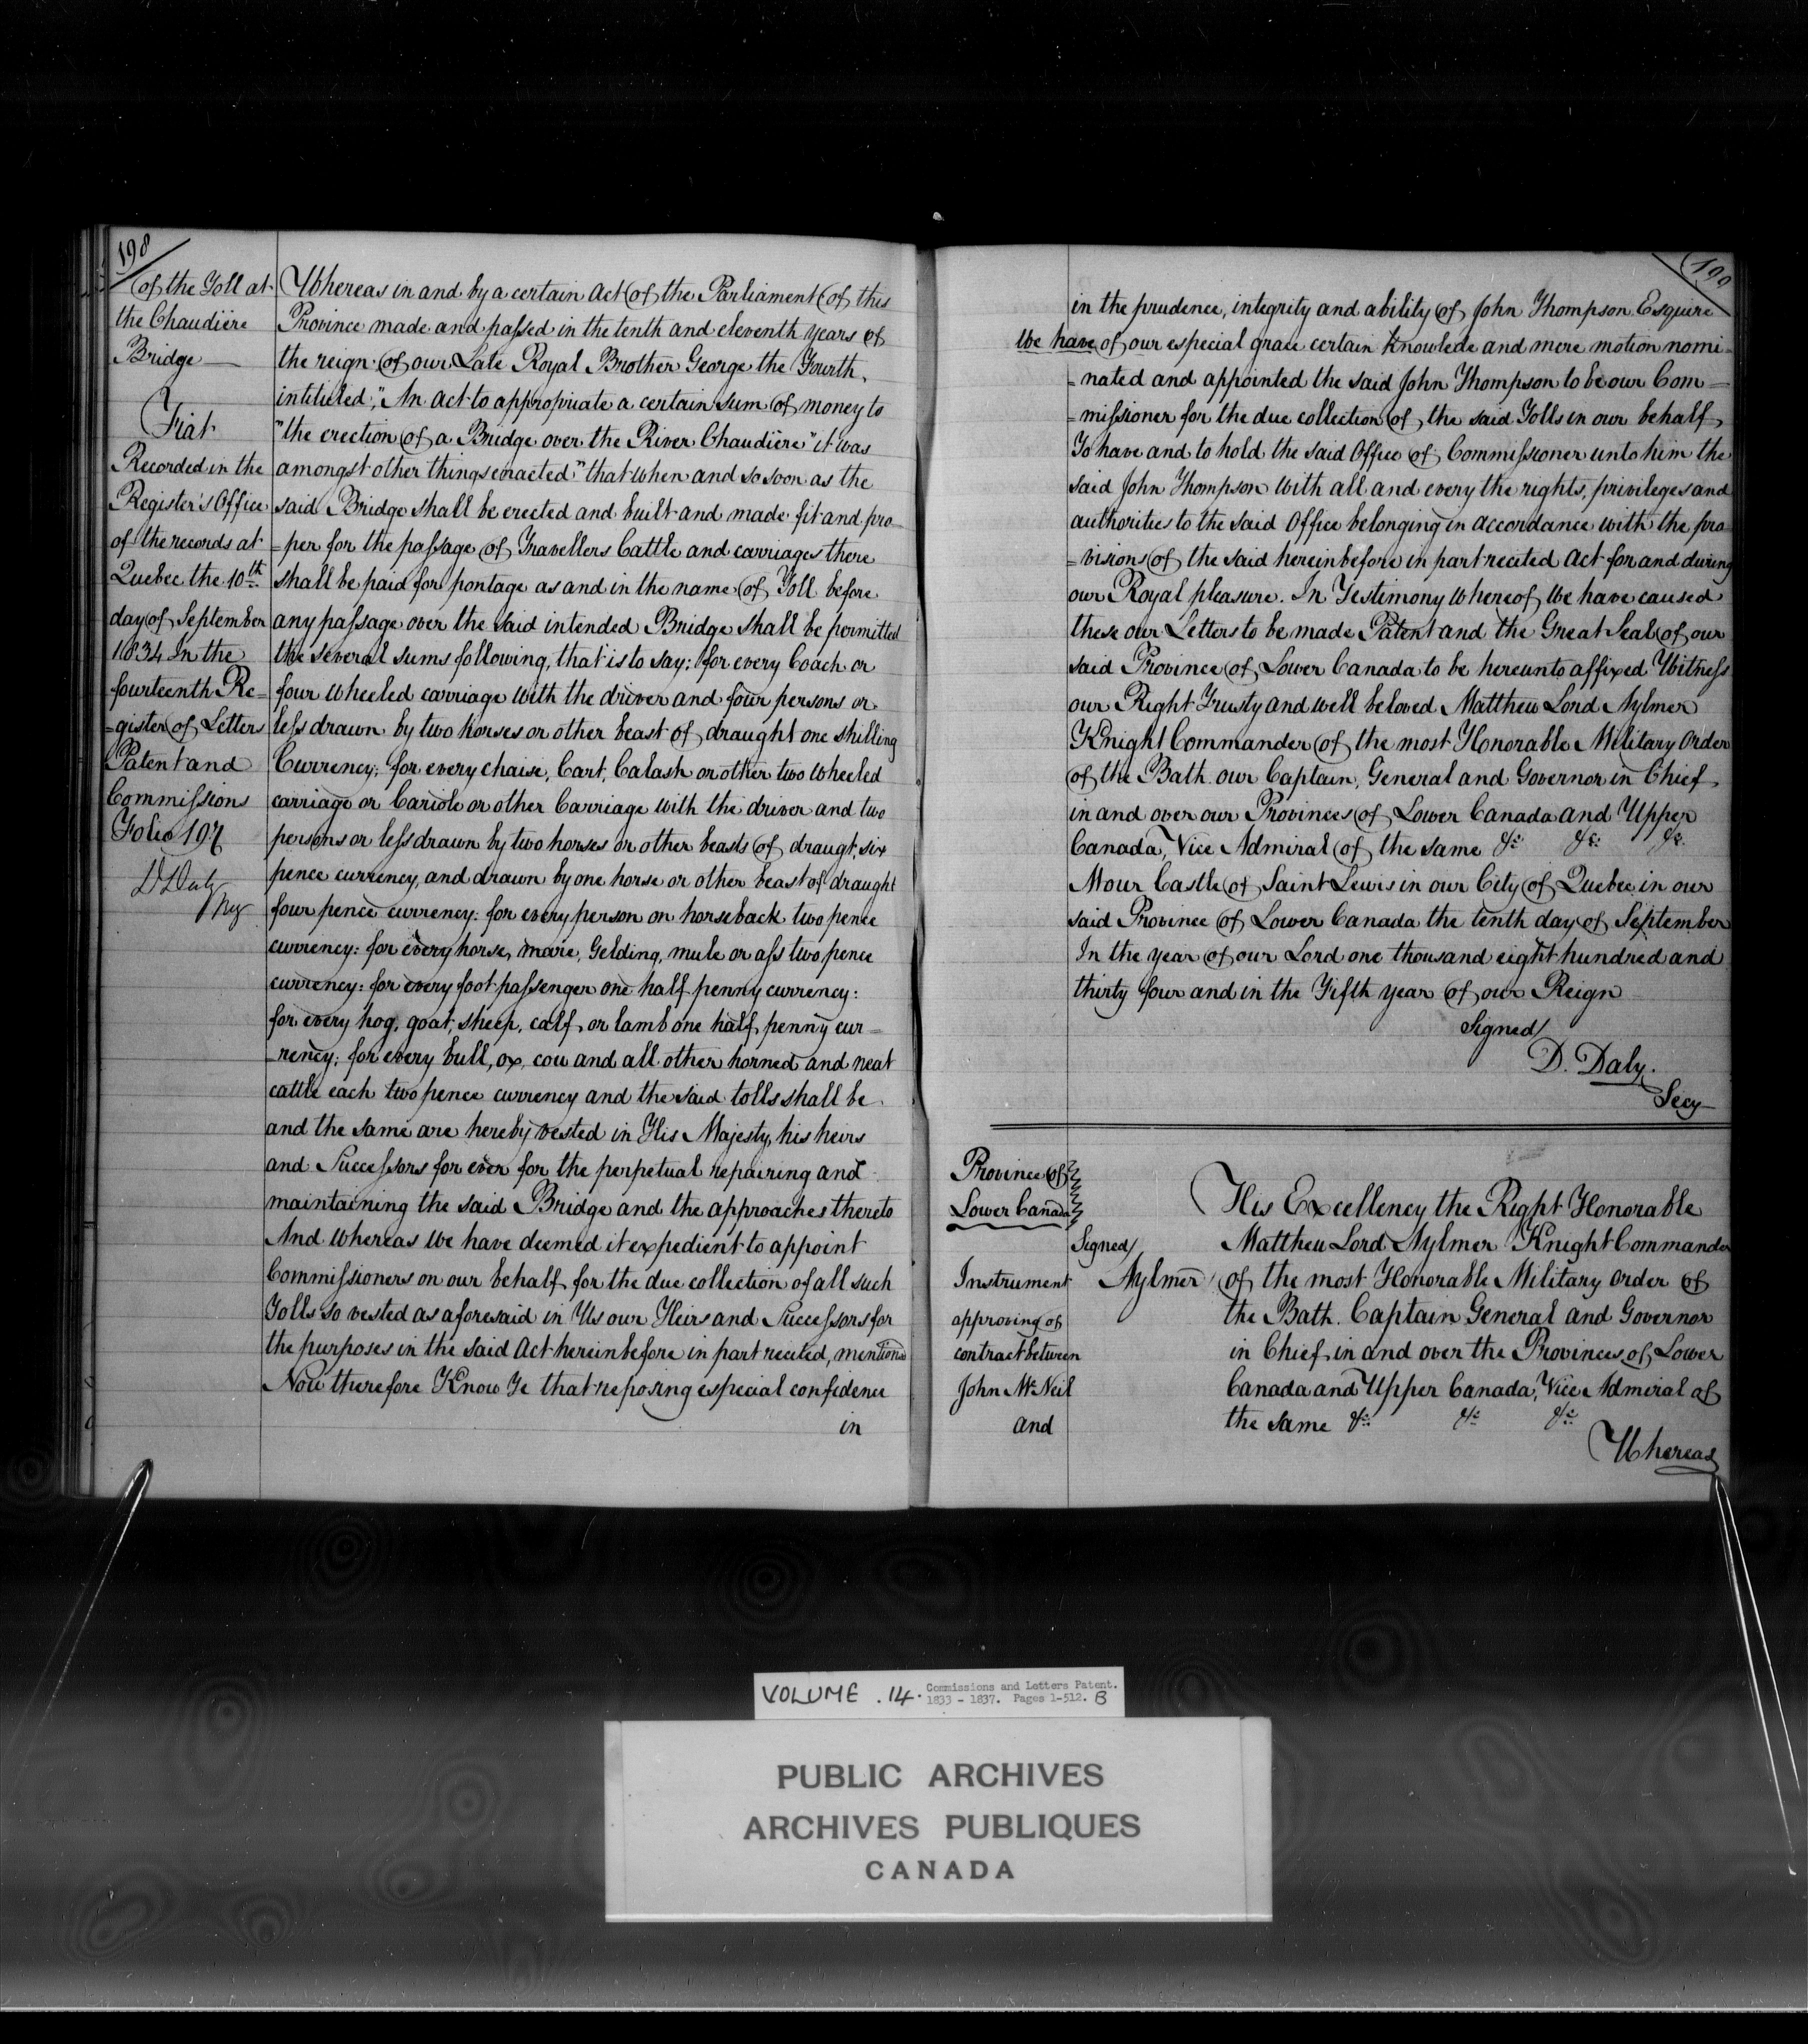 198
of the Toll at
the Chaudière
Bridge
Fiat
Recorded in the
Register's Office
of the records at
Quebec the 10th
day of September
1834 In the
fourteenth Re=
=gister of Letters
Patent and
Commissions
Folio 197
D Daly
Reg
Whereas in and by a certain Act of the Parliament of this
Province made and passed in the tenth and eleventh years of
the reign of our Late Royal Brother George the Fourth,
intituled, "An Act to appropriate a certain sum of money to
"the erection of a Bridge over the River Chaudière" it was
amongst other things enacted "that when and so soon as the
said Bridge shall be erected and built and made fit and pro=
=per for the passage of Travellers Cattle and carriages there
shall be paid for pontage as and in the name of Toll before
any passage over the said intended Bridge shall be permitted
the several sums following, that is to say: for every Coach or
four wheeled carriage with the driver and four persons or
less drawn by two horses or other beast of draught one shilling
Currency; for every chaise, Cart, Calash or other two wheeled
carriage or Cariole or other Carriage with the driver and two
persons or less drawn by two horses or other beasts of draugt, six
pence currency, and drawn by one horse or other beast of draught
four pence currency: for every person on horseback two pence
currency: for every horse, mare, Gelding, mule or ass two pence
currency: for every foot passenger one half penny currency:
for every hog, goat, sheep, calf, or lamb one half penny cur=
=rency; for every bull, ox, cow and all other horned and neat
cattle each two pence currency and the said tolls shall be
and the same are hereby vested in His Majesty, his heirs
and Successors for ever for the perpetual repairing and
maintaining the said Bridge and the approaches thereto
And whereas we have deemed it expedient to appoint
Commissioners on our behalf for the due collection of all such
Tolls so vested as aforesaid in Us our Heirs and Successors for
the purposes in the said Act herein before in part recited, mentioned
Now therefore Know Ye that reposing especial confidence
in
199
in the prudence, integrity and ability of John Thompson Esquire
We have of our especial grace certain Knowlede and mere motion nomi=
=nated and appointed the said John Thompson to be our Com=
=missioner for the due collection of the said Tolls in our behalf,
To have and to hold the said Office of Commissioner unto him the
said John Thompson with all and every the rights, privileges and
authorities to the said Office belonging in accordance with the pro=
=visions of the said herein before in part recited Act for and during
our Royal pleasure. In Testimony whereof We have caused
these our Letters to be made Patent and the Great Seal of our
said Province of Lower Canada to be hereunto affixed Witness
our Right Trusty and well beloved Matthew Lord Aylmer
Knight Commander of the most Honorable Military Order
of the Bath our Captain, General and Governor in Chief,
in and over our Provinces of Lower Canada and Upper
Canada, Vice Admiral of the same &c &c &c.
At our Castle of Saint Lewis in our City of Quebec in our
said Province of Lower Canada the tenth day of September
In the year of our Lord one thousand eight hundred and
thirty four and in the Fifth year of our Reign
Signed/
D. Daly.
Secy
Province of
Lower Canada
Signed/
Aylmer
Instrument
approving of
contract between
John McNeil
and
His Excellency the Right Honorable
Matthew Lord Aylmer Knight Commander
of the most Honorable Military Order of
the Bath. Captain General and Governor
in Chief in and over the Provinces of Lower
Canada and Upper Canada, Vice Admiral of
the same &c &c &c
Whereas
VOLUME .14. Commissions and Letters Patent.
1833 - 1837. Pages 1-512. B
PUBLIC ARCHIVES
ARCHIVES PUBLIQUES
CANADA